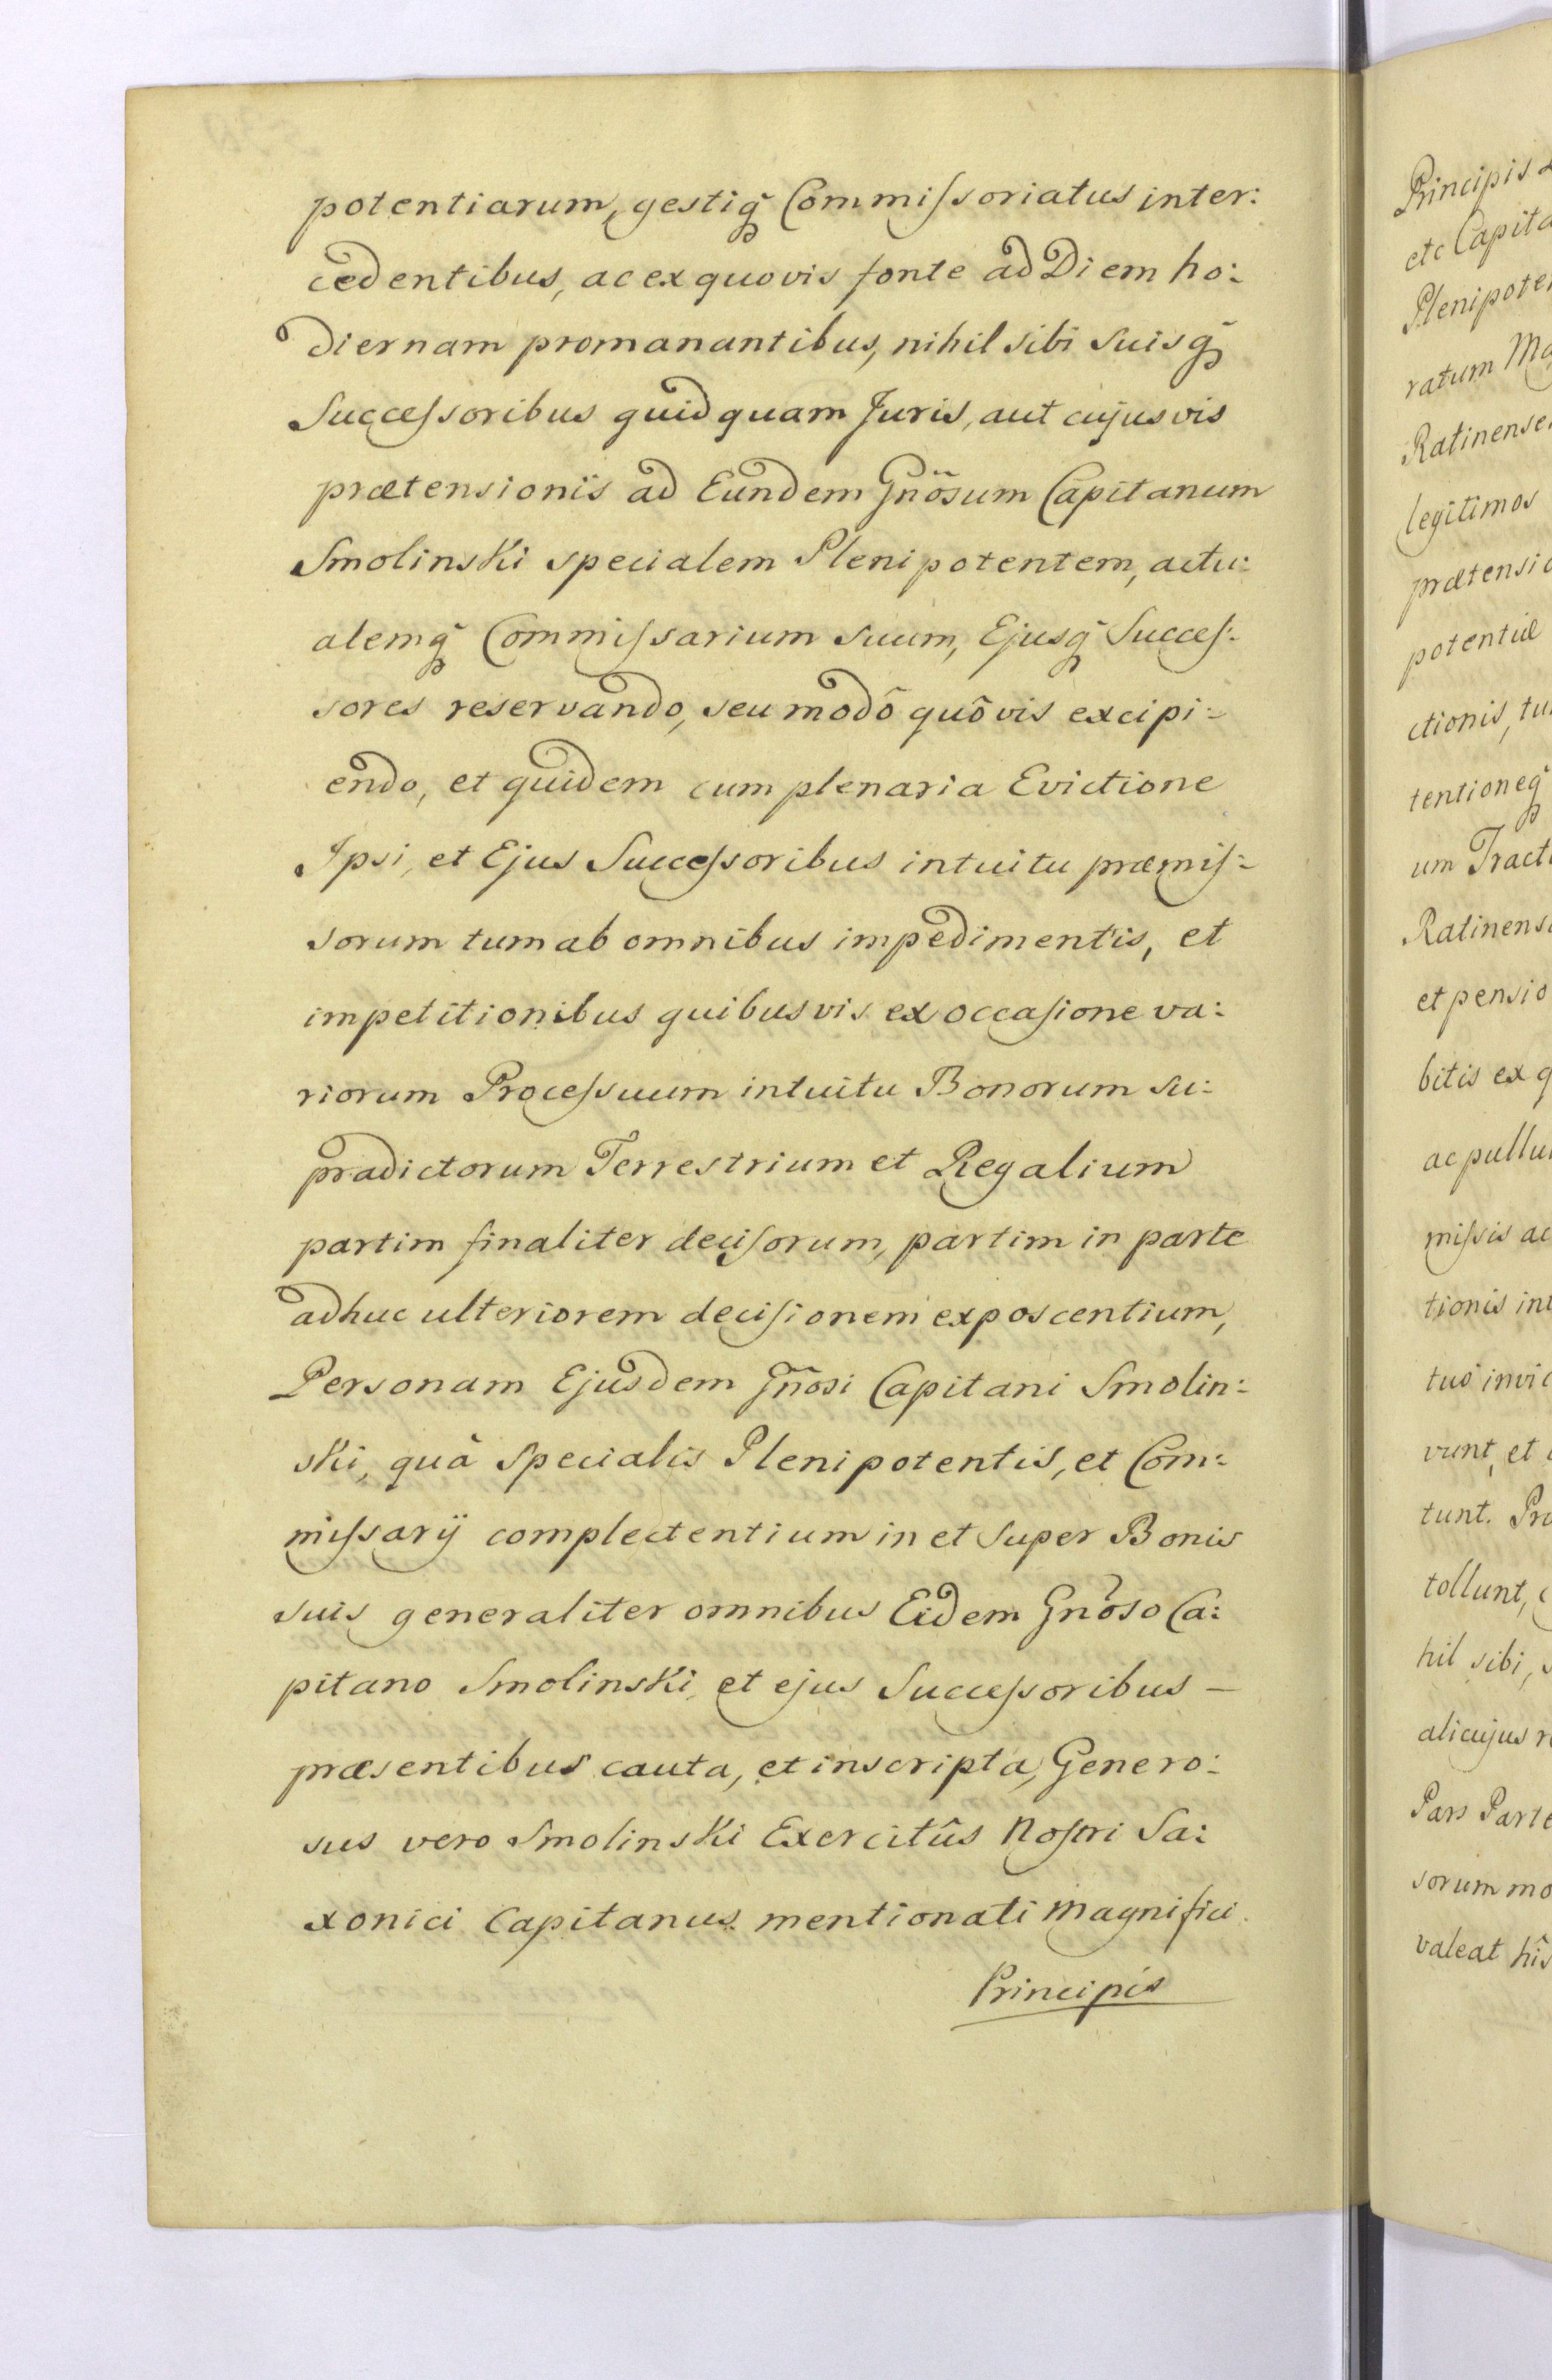 potentiarum, gestiq̃ Commiſsoriatus inter:
cedentibus, ac ex quovis fonte ad Diem ho:
diernam promanantibus, nihil sibi suisq̃
Succeſsoribus quidquam Juris, aut cujusvis
prætensionis ad Eundem Gnõsum Capitanum
Smolinski specialem Plenipotentem, actu:
alemq̃ Commiſsarium suum, Ejusq̃ Succeſ:
sores reservando, seu modô quôvis excipi:
endo, et quidem cum plenaria Evictione
Ipsi, et Ejus Succeſsoribus intuitu præmiſ:
sorum tum ab omnibus impedimentis, et
impetitionibus quibusvis ex occaſione va:
riorum Proceſsuum intuitu Bonorum su:
pradictorum Terrestrium et Regalium
partim finaliter deciſorum, partim in parte
adhuc ulteriorem deciſionem exposcentium,
Personam Ejusdem Gñosi Capitani Smolin:
ski, quà Specialis Plenipotentis, et Com:
miſsarij complectentium in et Super Bonis
suis generaliter omnibus Eidem Gnõso Ca:
pitano Smolinski, et ejus Succeſsoribus –
præsentibus cauta, et inscripta, Genero:
sus vero Smolinski Exercitûs Noſtri Sa:
xonici Capitanus mentionati Magnifici
Principis
Principis
etc Capita
Plenipote
ratum Ma
Ratinense
legitimos
prætensio
potentiæ
ctionis, tu
tentioneq̃
um Tract
Ratinens
et pensio
bitis ex q
ac pullu
miſsis ac
tionis int
tuo invic
vunt, et
tunt. Pro
tollunt,
hil sibi, s
alicujus r
Pars Parte
sorum mo
valeat hîs